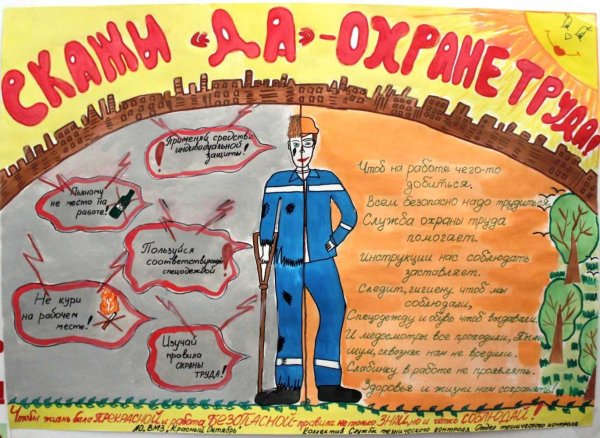 СКАЖИ «ДА»-ОХРАНЕ ТРУДА!
Применяй средства
индивидуальной
защиты!
Пьяному
не место на
работе!
Пользуйся
соответствующей
спецодеждой!
Не кури
на рабочем
месте!
Изучай
правила
ОХРАНЫ
ТРУДА!
Чтоб на работе чего-то
добиться,
Всем безопасно надо трудиться.
Служба охраны труда
помогает.
Инструкции нас соблюдать
заставляет.
Следит, гигиену чтоб мы
соблюдали,
Спецодежду и обувь чтоб выдавали.
И медосмотры все проходили, Пыль,
шум, сквозняк нам не вредили.
Слабинку в работе не проявлять.
Здоровья и жизни нам сохранять!
Чтобы жизнь была ПРЕКРАСНОЙ и работа БЕЗОПАСНОЙ- правила не только ЗНАЙ, но и чётко СОБЛЮДАЙ!
Ю.ВМЗ „Красный Октябрь" Коллектив Служба технического контроля Отдел технического контроля